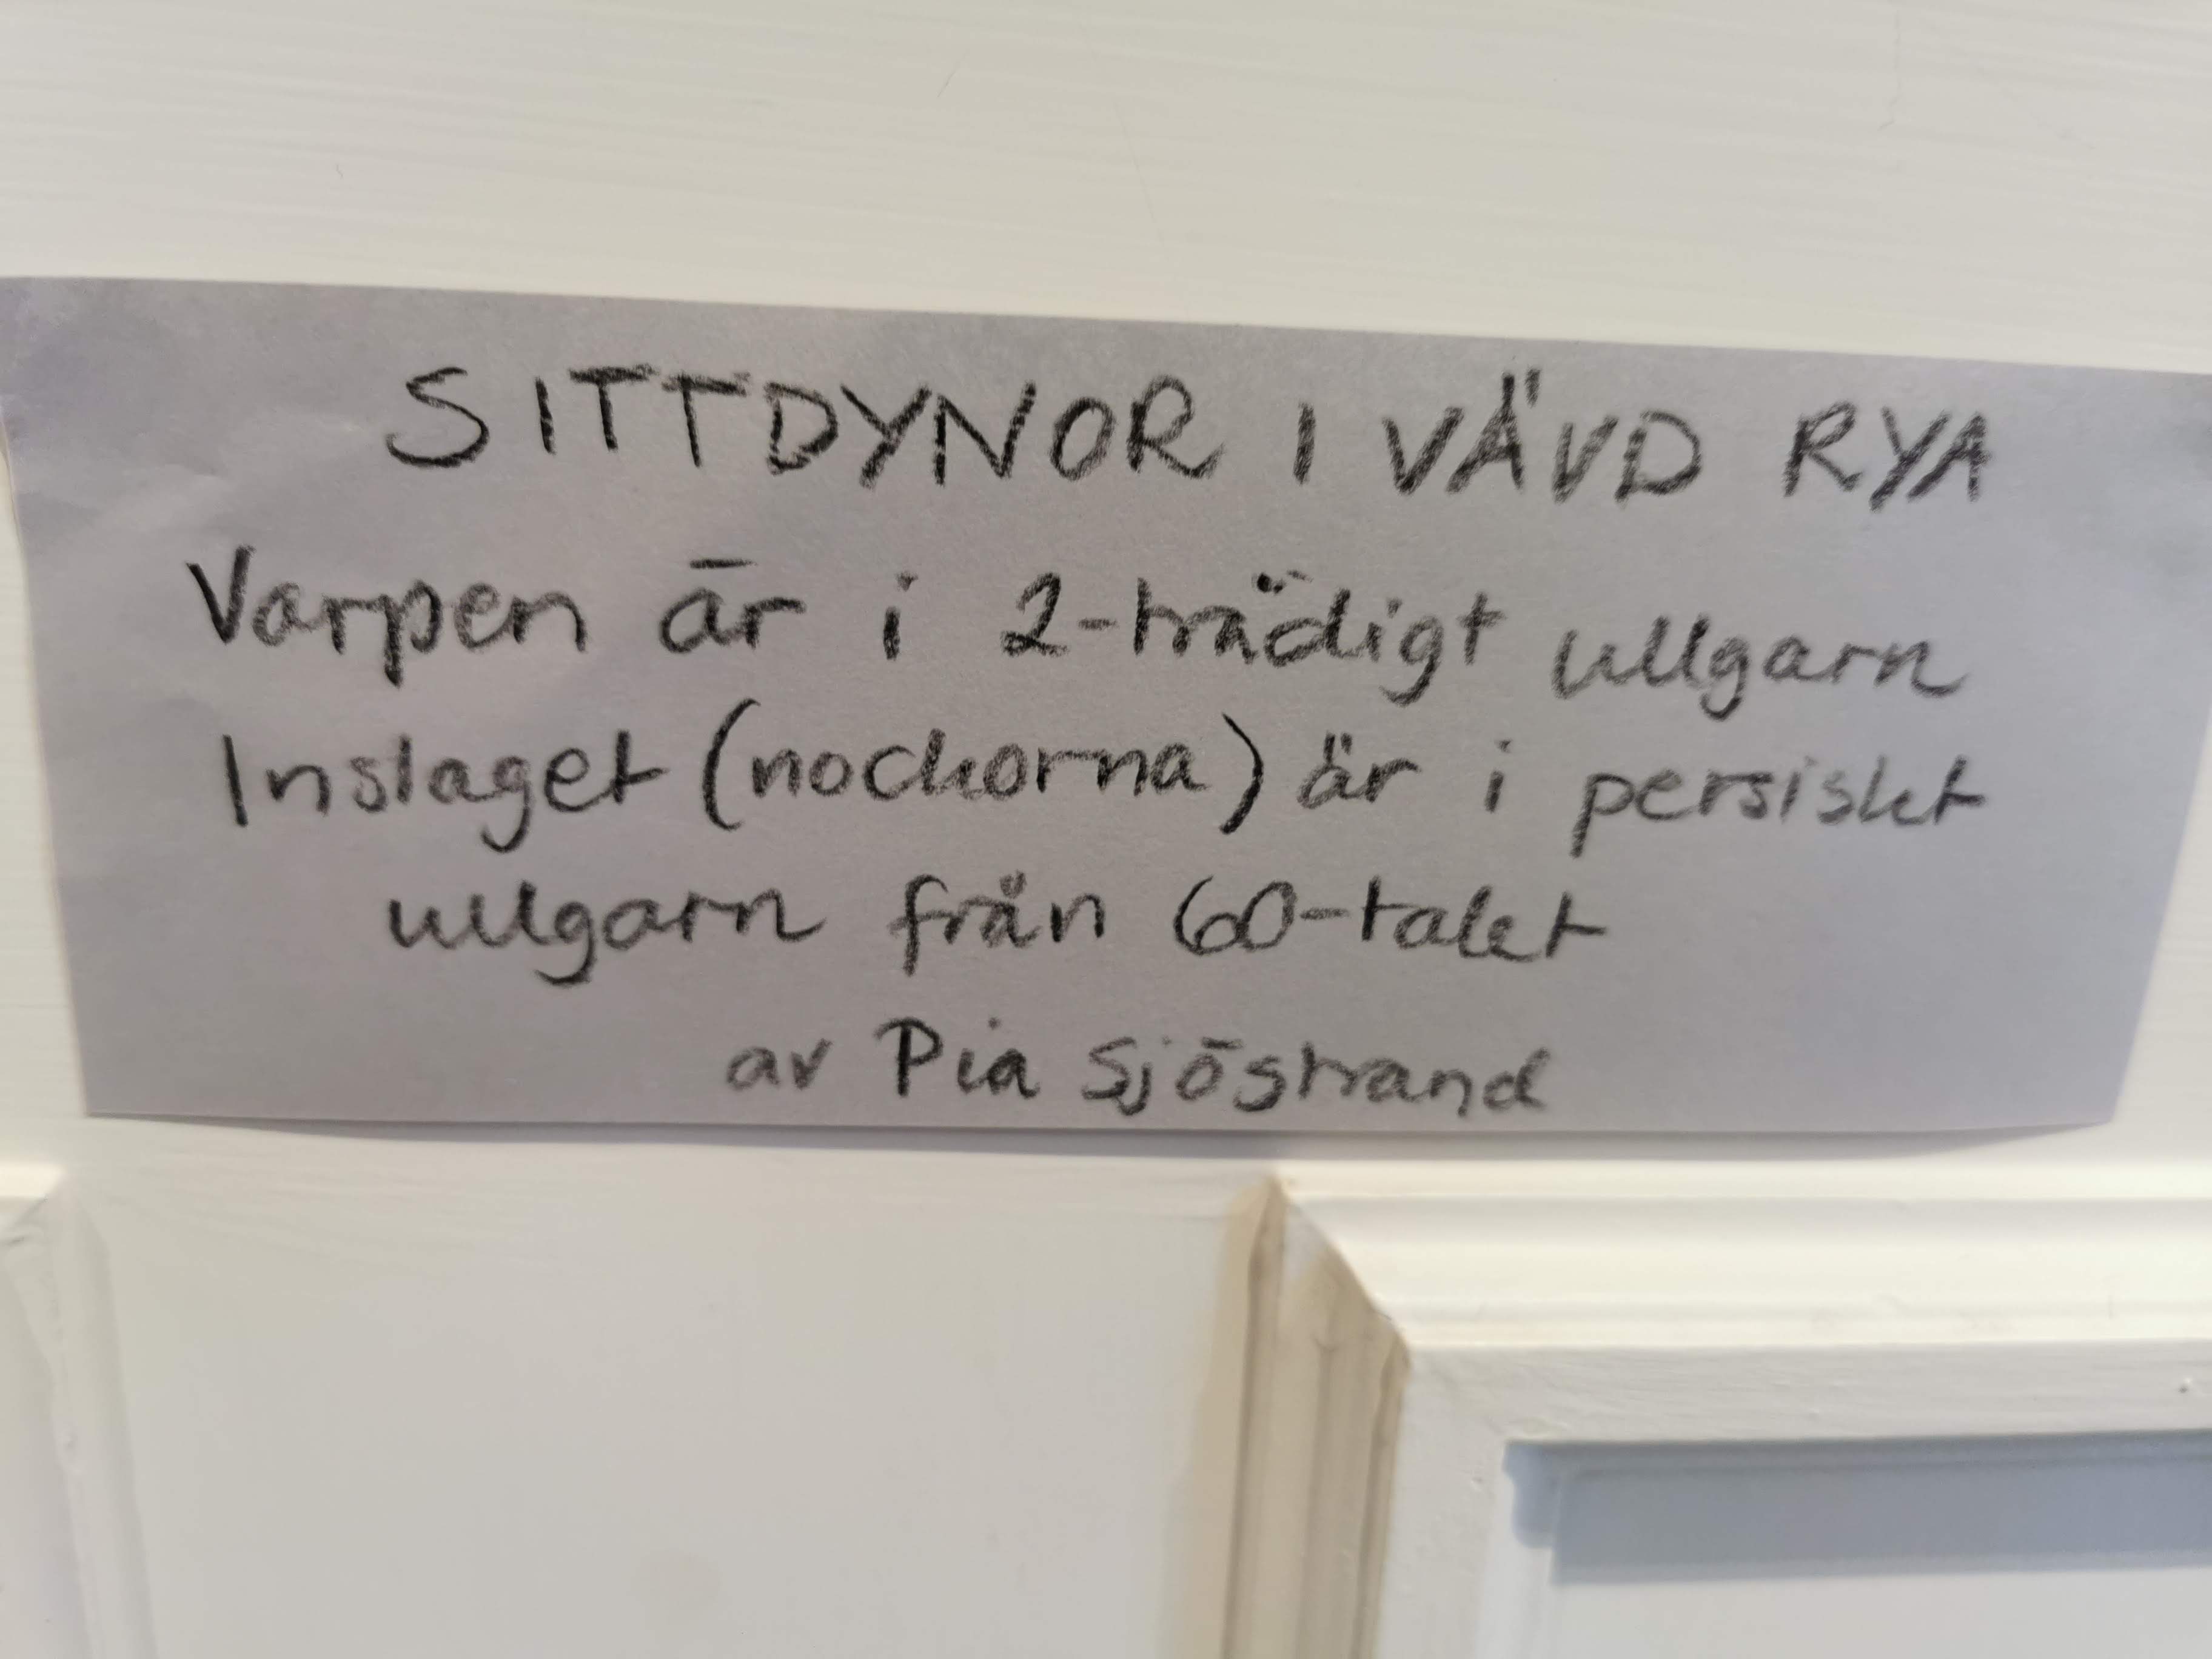 SITTDYNOR I VÄVD RYA
Varpen är i 2-trädigt ullgarn
Inslaget (nockorna) är i persiskt
ullgarn från 60-talet
av Pia Sjöstrand